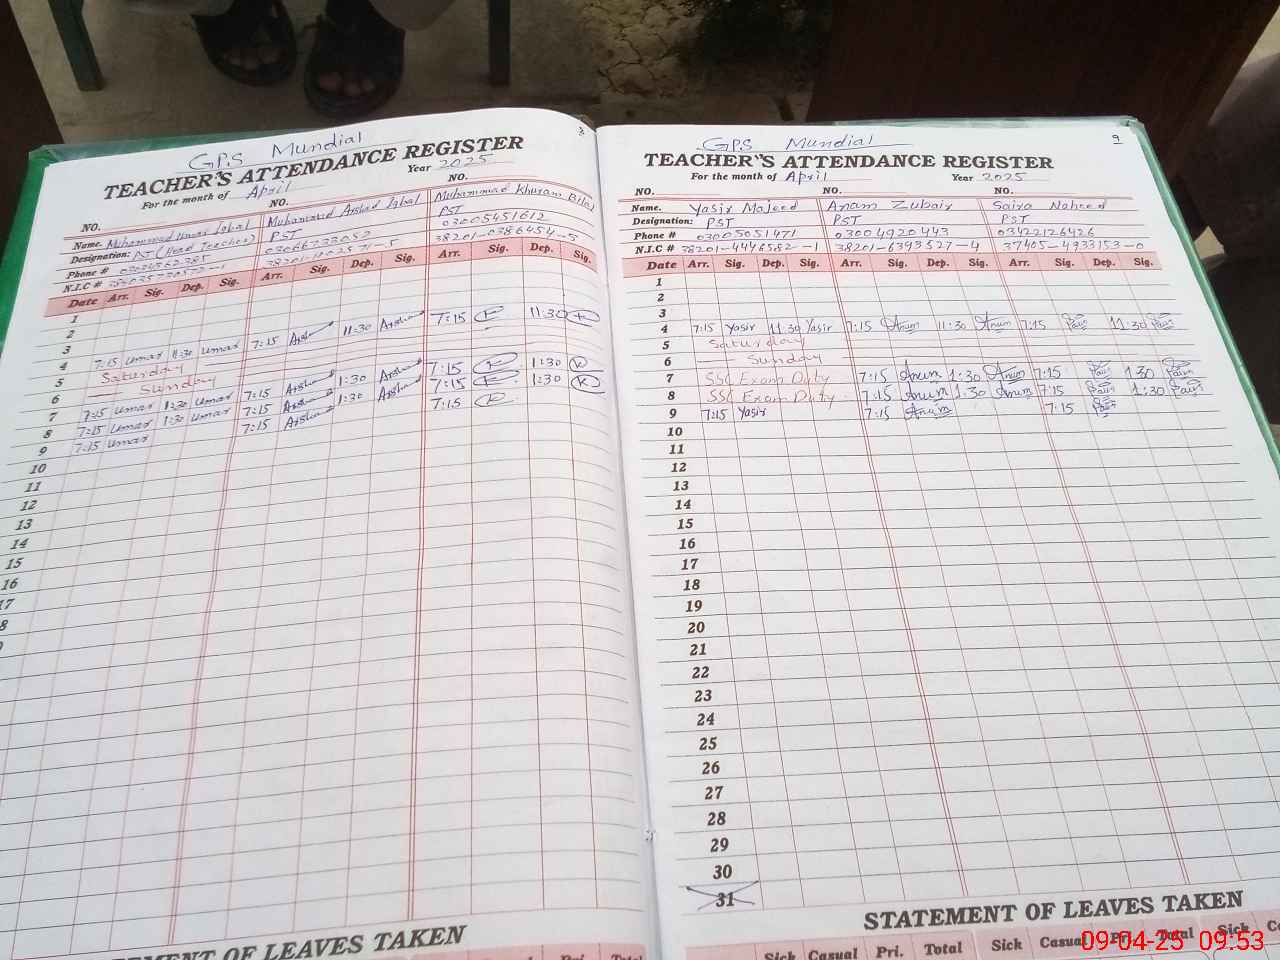 8
GPS Mundial
TEACHER'S ATTENDANCE REGISTER
For the month of April Year 2025
NO. NO. NO.
Name. Muhammad Umar Iqbal Muhammad Arshad Iqbal Muhammad Khuram Bilal
Designation: (Head Teacher) PST PST
Phone # 03066733052 03005451612
N.I.C # 38201-0386454-5
Date Arr. Sig. Dep. Sig. Arr. Sig. Dep. Sig. Arr. Sig. Dep. Sig.
1
2
3
4 7:15 Umar 11:30 Umar 7:15 Arshad 11:30 Arshad 7:15 K 11:30 K
5 Saturday
6 Sunday
7 7:15 Umar 1:30 Umar 7:15 Arshad 1:30 Arshad 7:15 K 1:30 K
8 7:15 Umar 1:30 Umar 7:15 Arshad 1:30 Arshad 7:15 K 1:30 K
9 7:15 Umar 7:15 Arshad 7:15 K
10
11
12
13
14
15
16
17
8
STATEMENT OF LEAVES TAKEN
Pri. Total
9
GPS Mundial
TEACHER'S ATTENDANCE REGISTER
For the month of April Year 2025
NO. NO. NO.
Name. Yasir Majeed Anam Zubair Saira Naheed
Designation: PST PST PST
Phone # 03005051471 03004920443 03422126426
N.I.C # 38201-4446582-1 38201-6393527-4 37405-4933153-0
Date Arr. Sig. Dep. Sig. Arr. Sig. Dep. Sig. Arr. Sig. Dep. Sig.
1
2
3
4 7:15 Yasir 11:30 Yasir 7:15 Anum 11:30 Anum 7:15 11:30
5 Saturday
6 Sunday
7 SSC Exam Duty 7:15 Anum 1:30 Anum 7:15 1:30
8 SSC Exam Duty 7:15 Anum 1:30 Anum 7:15 1:30
9 7:15 Yasir 7:15 Anum 7:15
10
11
12
13
14
15
16
17
18
19
20
21
22
23
24
25
26
27
28
29
30
31
STATEMENT OF LEAVES TAKEN
Sick Casual Pri. Total Sick Casual Pri. Total Sick
09-04-25 09:53